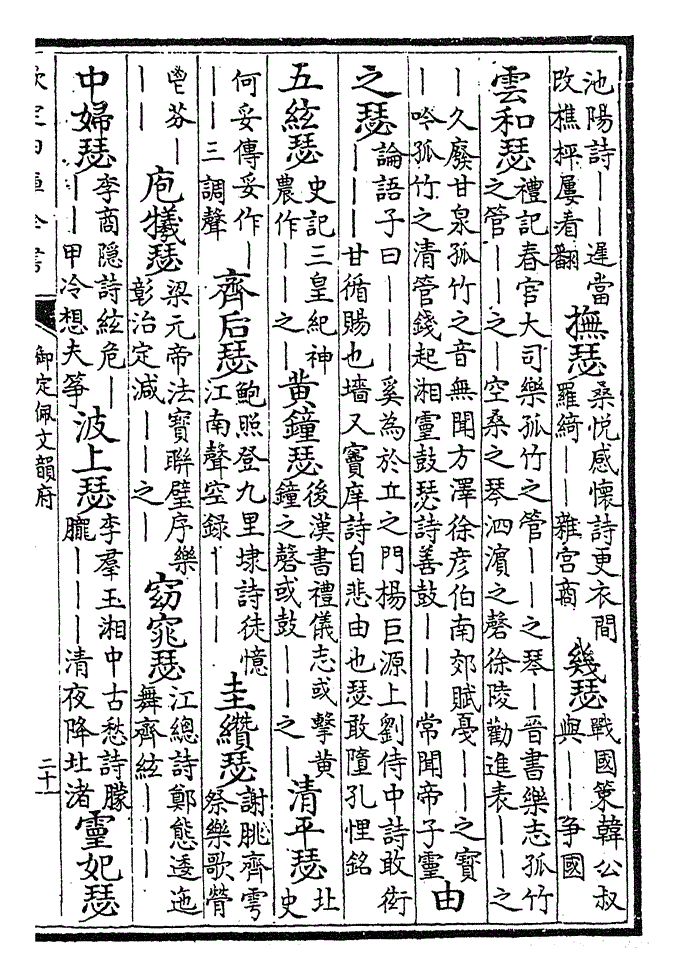 池陽詩——遲當
改樵枰屢看翻
撫瑟
桑悅感懷詩更衣間
羅綺——雜宮商
幾瑟
戰國策韓公叔
與——爭國
雲和瑟
禮記春官大司樂孤竹之管——之琴—晉書樂志孤竹
之管——之—空桑之琴泗濱之磬徐陵勸進表——之
—久廢甘泉孤竹之音無聞方澤徐彥伯南郊賦戞——之寶
—吟孤竹之清管錢起湘靈鼓瑟詩善鼓———常聞帝子靈
由
之瑟
論語子曰————奚為於丘之門楊巨源上劉侍中詩敢衒
————甘循賜也墻又竇庠詩自悲由也瑟敢隳孔悝銘
五絃瑟
史記三皇紀神
農作———之—
黃鐘瑟
後漢書禮儀志或擊黃
鐘之磬或鼓——之—
清平瑟
北
史
何妥傳妥作—
——三調聲
齊后瑟
鮑照登九里埭詩徒憶
江南聲空錄———
圭纘瑟
謝朓齊雩
祭樂歌膋
鬯芬—
——
庖犧瑟
梁元帝法寶聯璧序樂
彰治定減——之—
窈窕瑟
江總詩鄭態逶迤
舞齊絃———
中婦瑟
李商隱詩絃危—
——甲冷想夫箏
波上瑟
李羣玉湘中古愁詩朦
朧———清夜降北渚
靈妃瑟
欽定四庫全書
御定佩文韻府
二十一